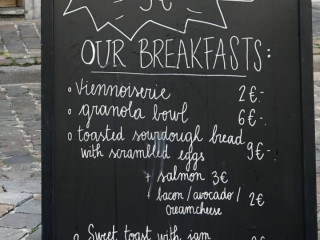 9€
OUR BREAKFASTS:
o Viennoiserie 2€-
o granola bowl 6€-
o toasted sourdough bread
with scrambled eggs 9€-
+ salmon 3€
+ bacon / avocado /
creamcheese 2€
o Sweet toast with jam